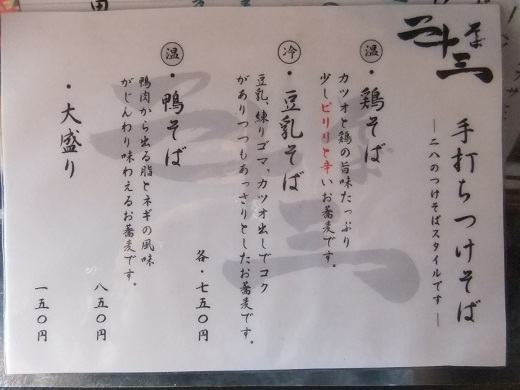 そば
二十三
手打ちつけそば
―二八のつけそばスタイルです―
温
・鶏そば
カツオと鶏の旨味たっぷり
少しピリリと辛いお蕎麦です。
冷
・豆乳そば
豆乳、練りゴマ、カツオ出しでコク
がありつつもあっさりとしたお蕎麦です。
各・七五〇円
温
・鴨そば
鴨肉から出る脂とネギの風味
がじんわり味わえるお蕎麦です。
八五〇円
・大盛り
一五〇円